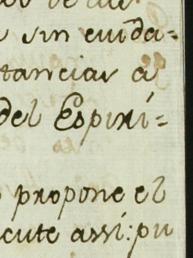 sin cuida-
tanciar a
del Espiri=
propone el
cute assi: pu